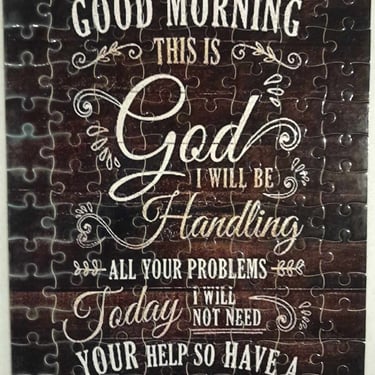 GOOD MORNING
THIS IS
God
I WILL BE
Handling
ALL YOUR PROBLEMS
Today I WILL
NOT NEED
YOUR HELP SO HAVE A